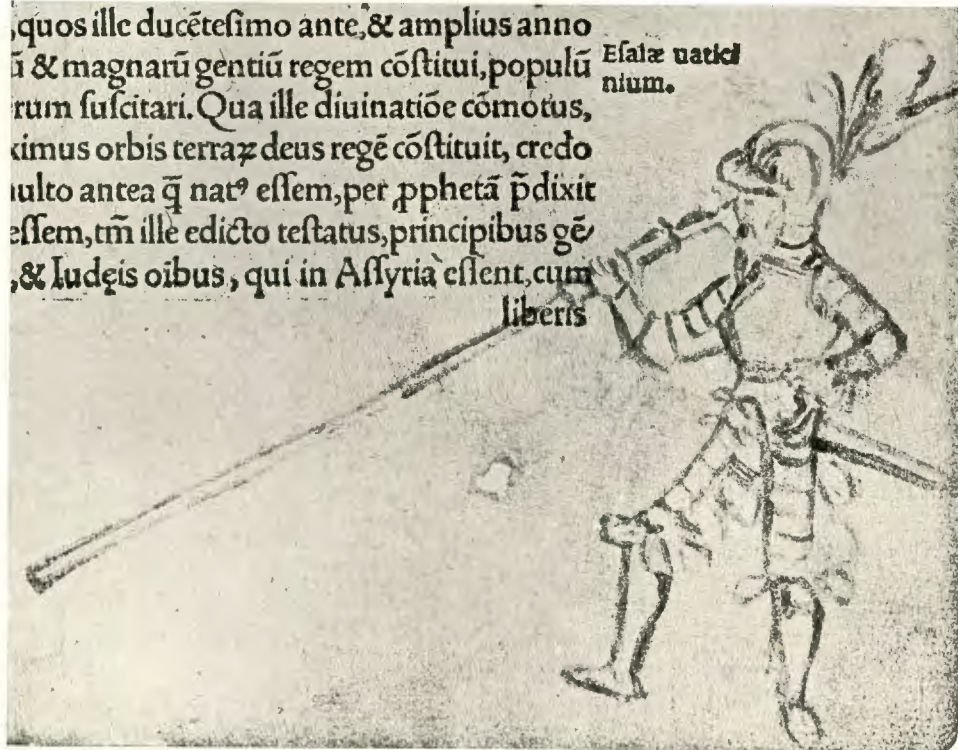 ,quos ille ducētesimo ante,& amplius anno
ū & magnarū gentiū regem cōstitui,populū
rum suscitari. Qua ille diuinatiōe cōmotus,
ximus orbis terraꝝ deus regē cōstituit, credo
multo antea q̄ natꝰ essem,per ꝓphetā p̄dixit
essem,tm̄ ille edicto testatus,principibus gē
,& Iudęis oībus, qui in Assyria essent,cum
liberis
Esaiæ uatici
nium.